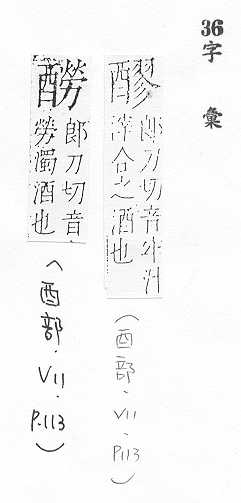 36
字彙
醪
郎刀切音汁
滓合之酒也
(酉部.V11.P113)
郎刀切音
勞濁酒也
(酉部.V11.P.113)